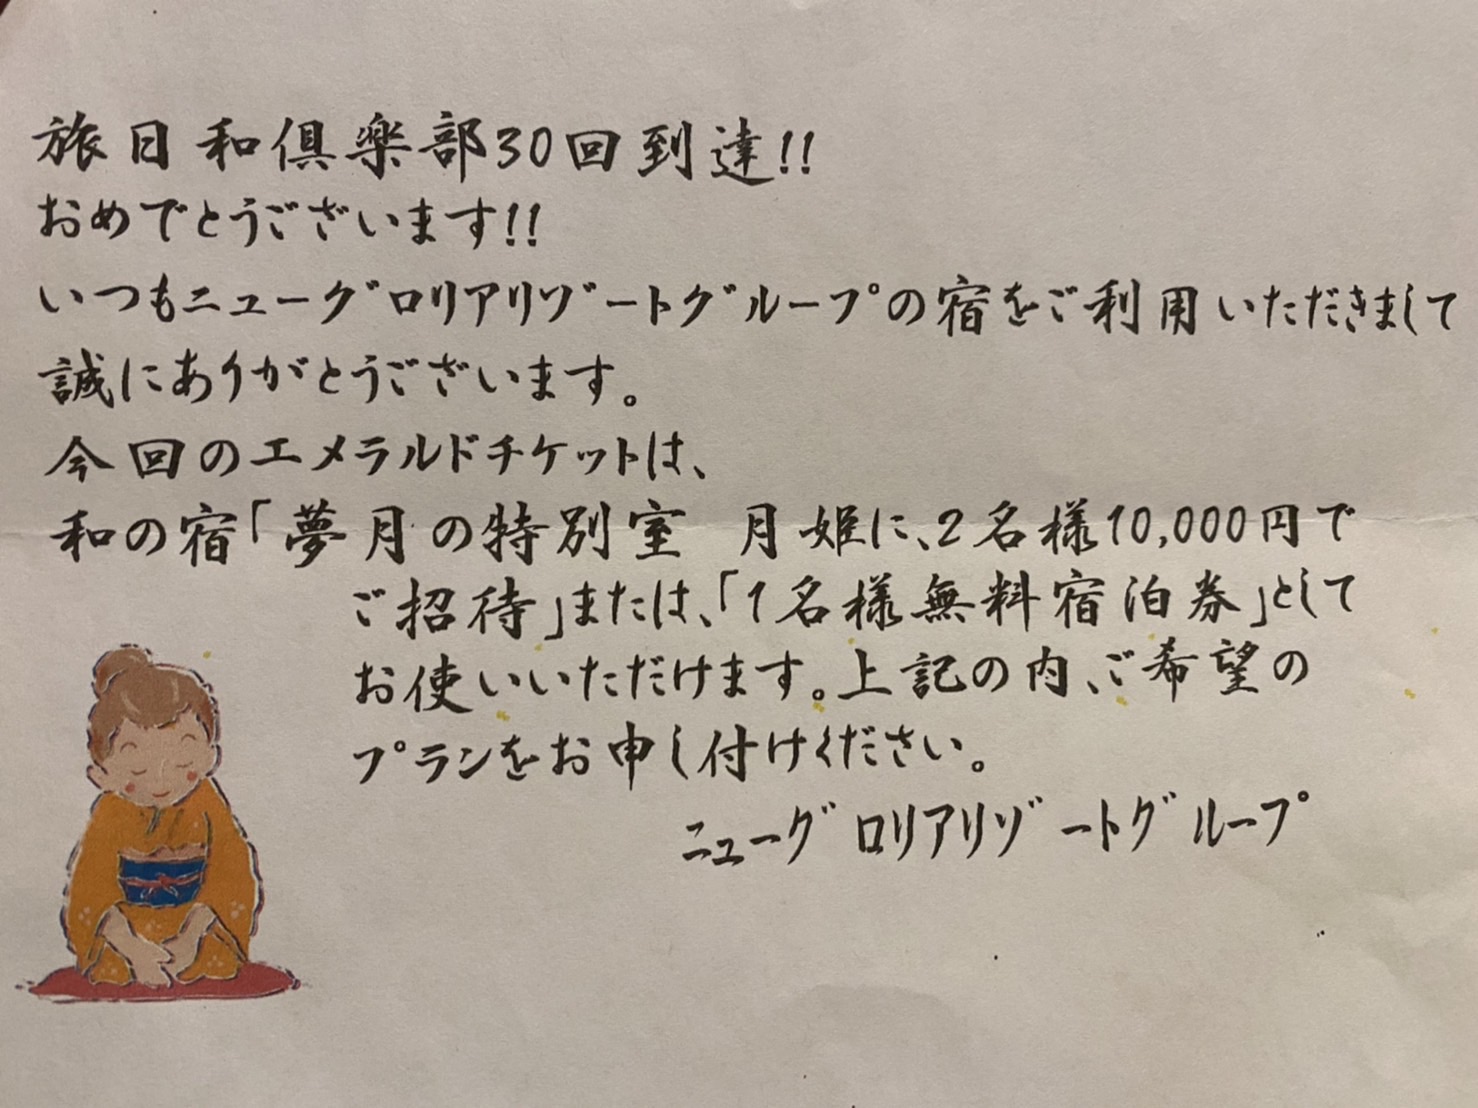 旅日和倶楽部30回到達!!
おめでとうございます!!
いつもニューグロリアリゾートグループの宿をご利用いただきまして
誠にありがとうございます。
今回のエメラルドチケットは、
和の宿「夢月の特別室 月姫に、2名様10,000円で
ご招待」または、「1名様無料宿泊券」として
お使いいただけます。上記の内、ご希望の
プランをお申し付けください。
ニューグロリアリゾートグループ